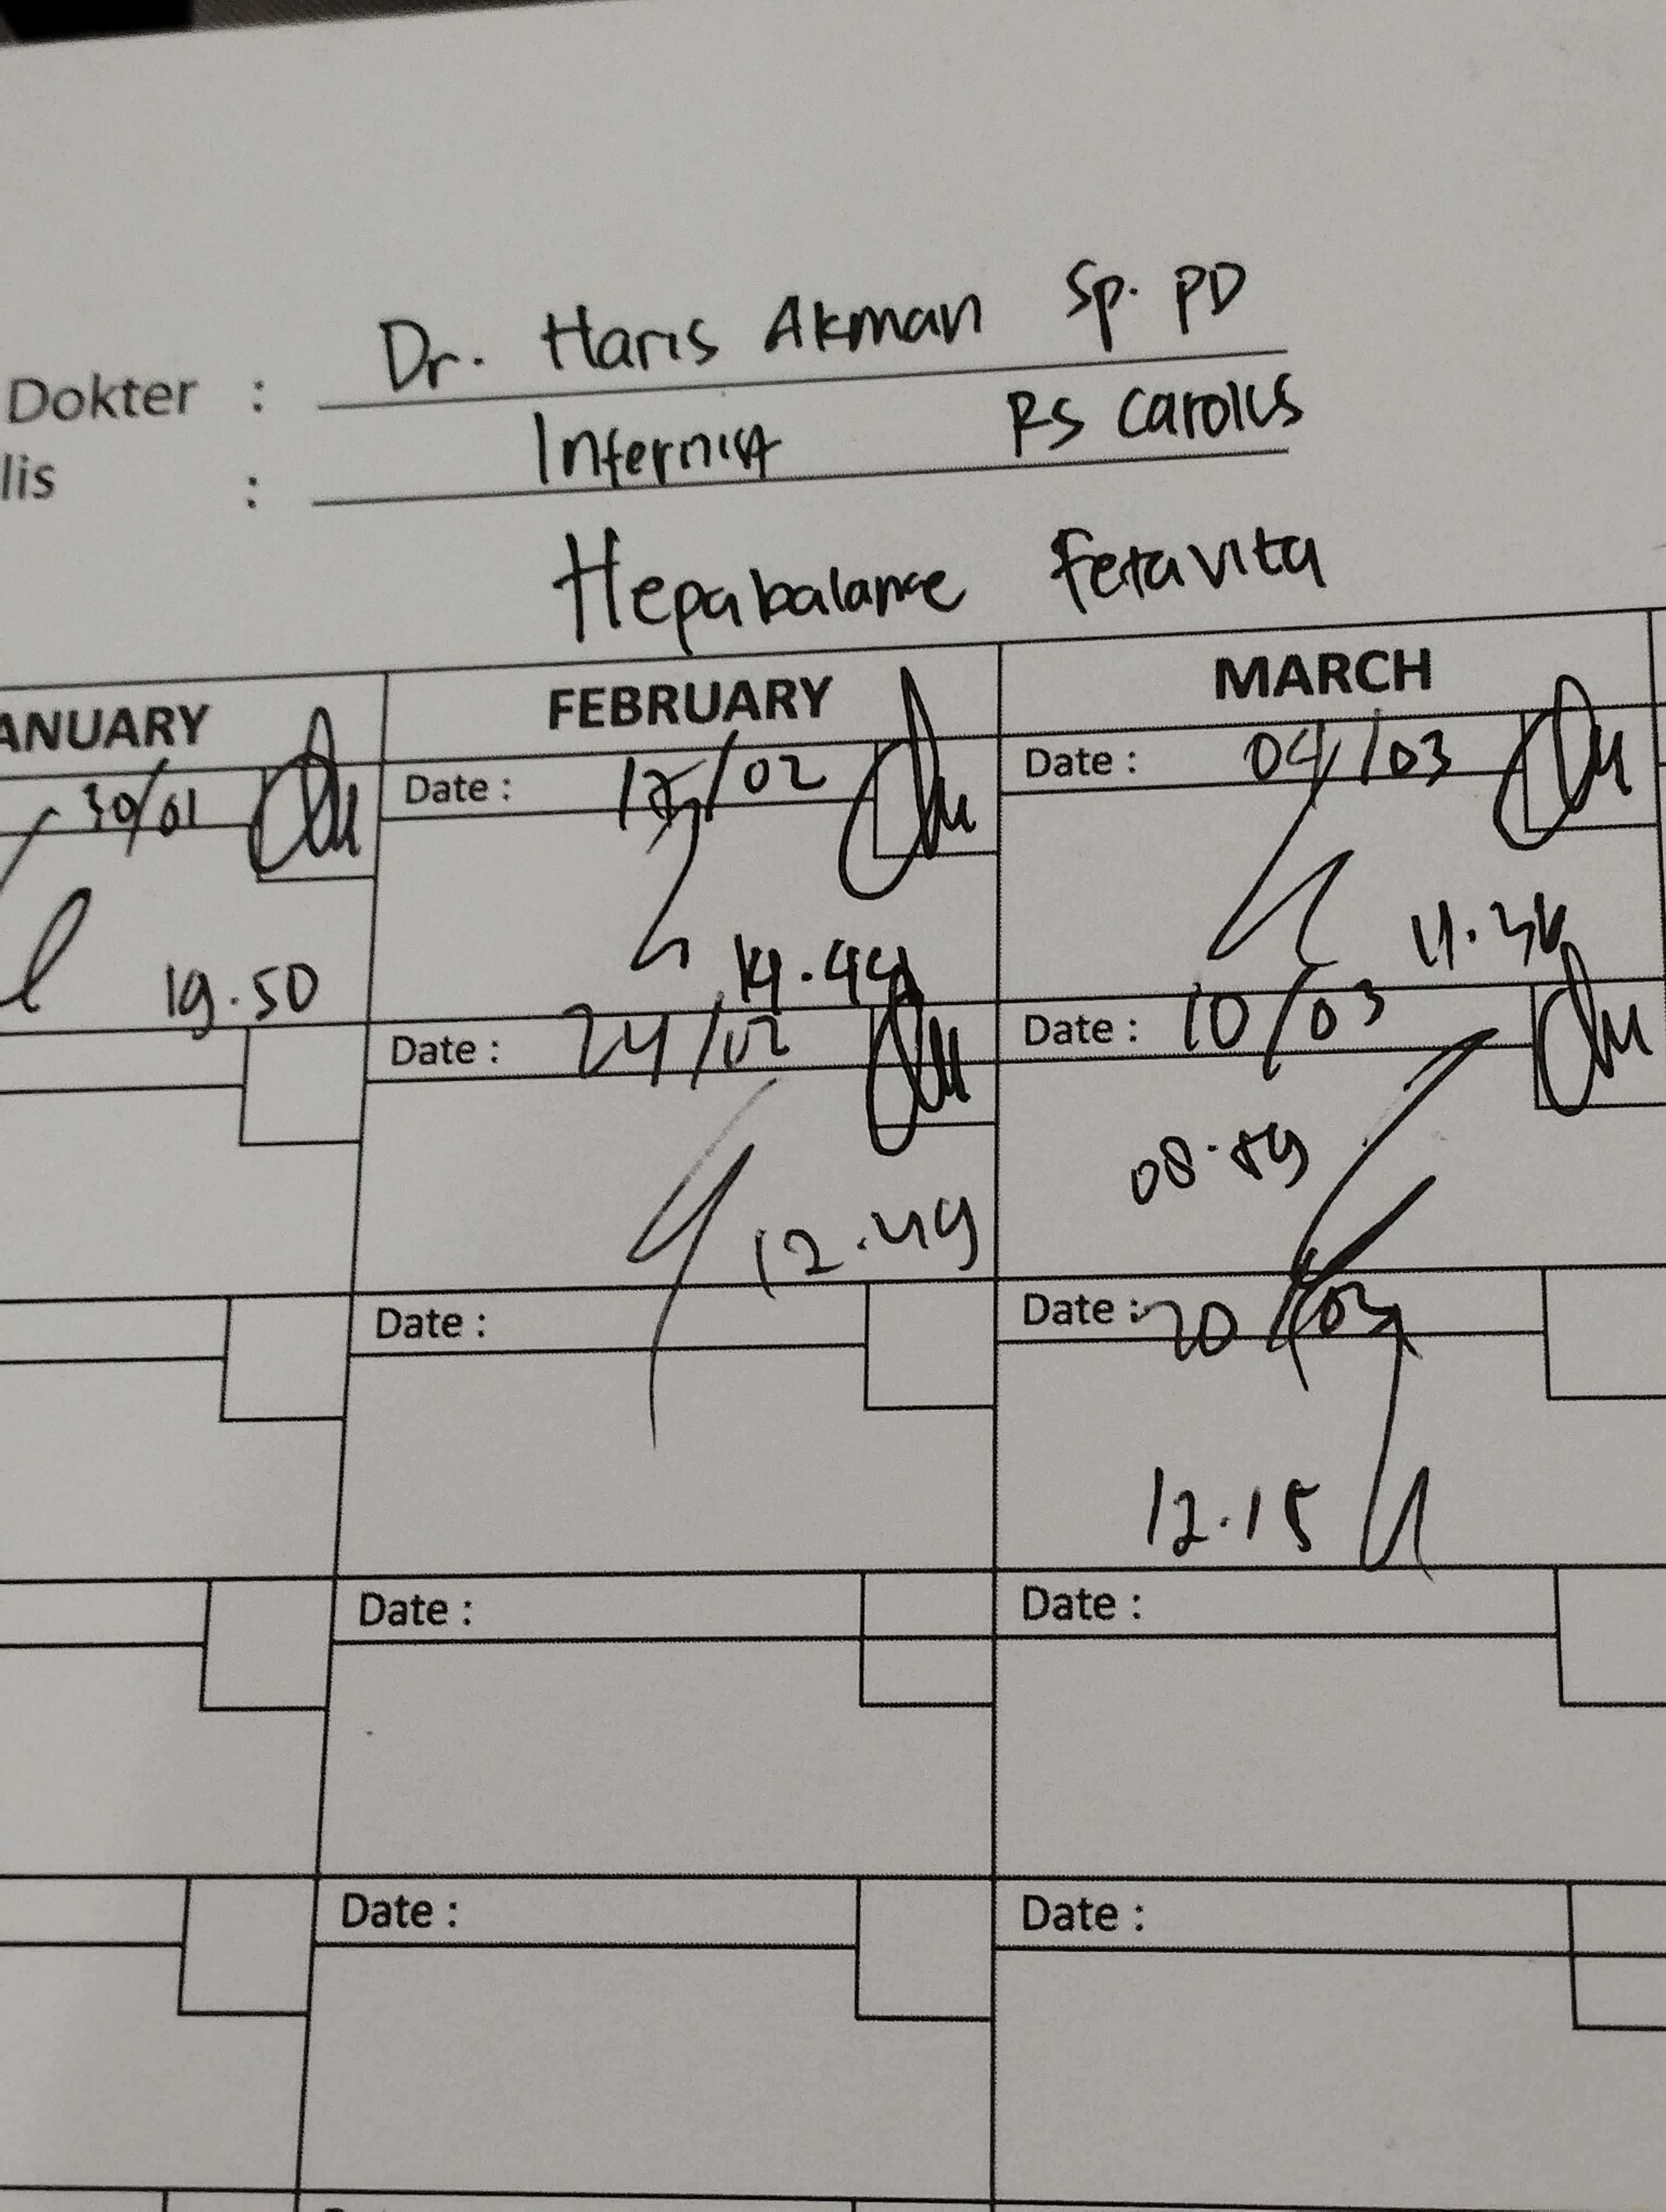 Dokter : Dr. Haris Akman Sp. PD
lis : Internist RS Carolus
Hepabalance Fetavita
ANUARY FEBRUARY MARCH
30/01 Date : /02 Date : 04/03
19.50 14.44 11.36
Date : 24/02 Date : 10/03
12.49 08.59
Date : Date : 20/03
12.15
Date : Date :
Date : Date :